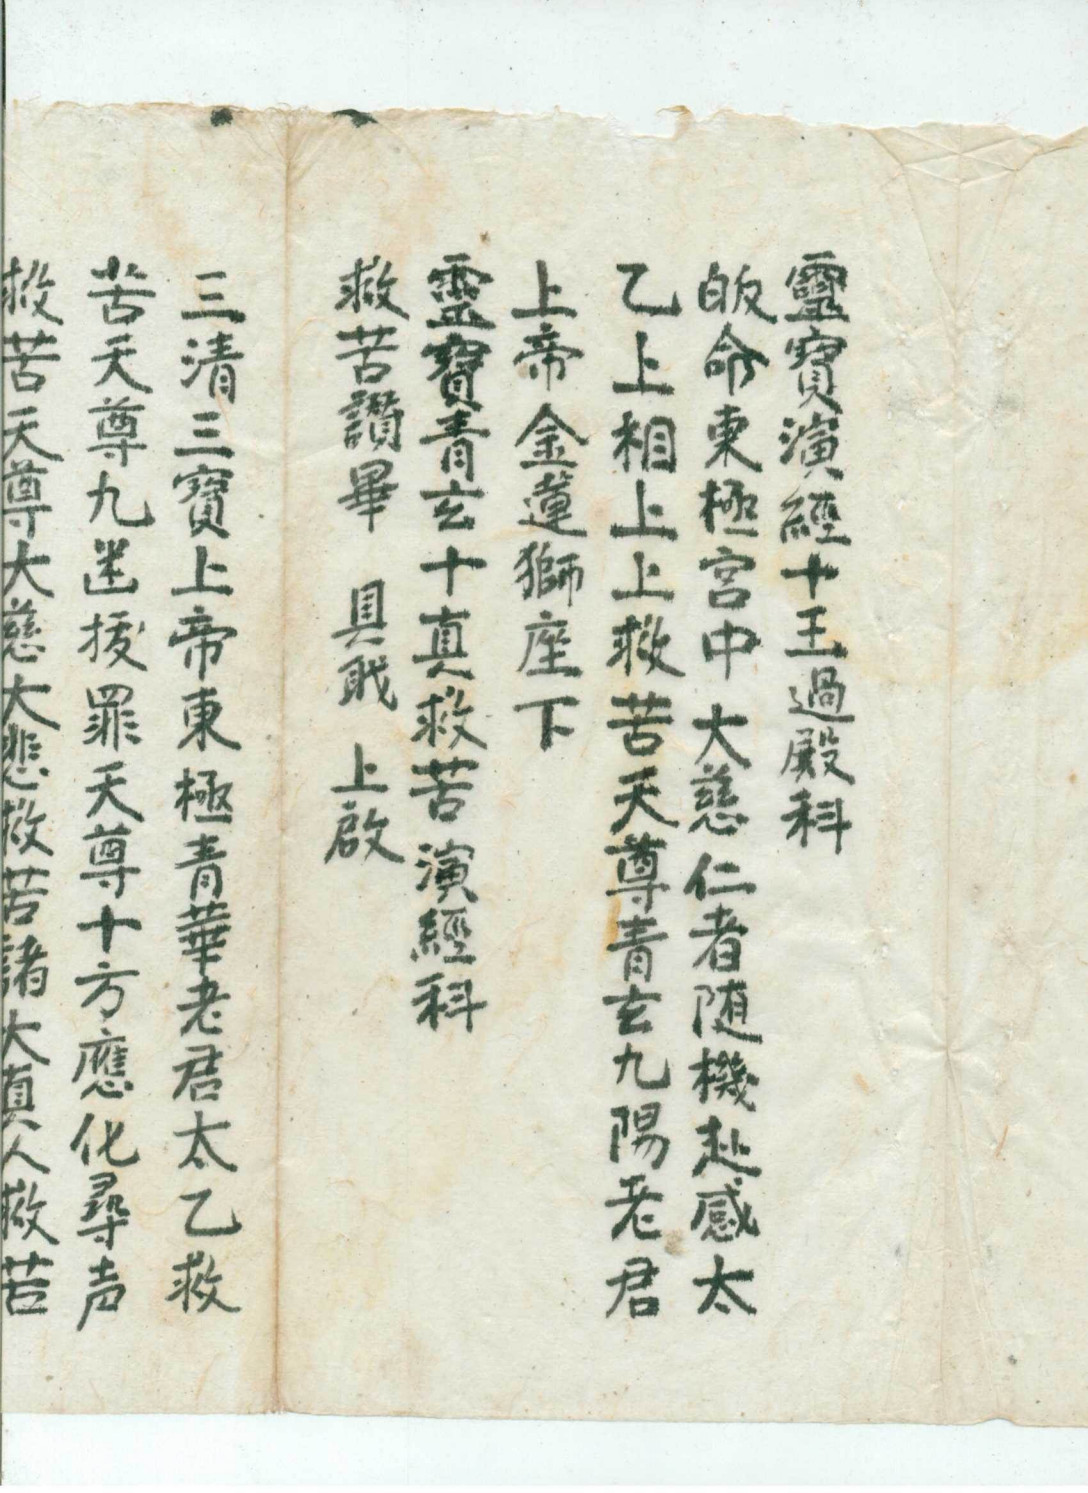 靈寶演經十王過殿科
皈命東極宮中大慈仁者随機赴感太
乙上相上上救苦天尊青玄九陽老君
上帝金蓮獅座下
靈寶青玄十真救苦演經科
救苦讚畢 具戝 上啟
三清三寶上帝東極青華老君太乙救
苦天尊九幽拔罪天尊十方應化尋声
救苦天尊大慈大悲救苦諸大真人救苦